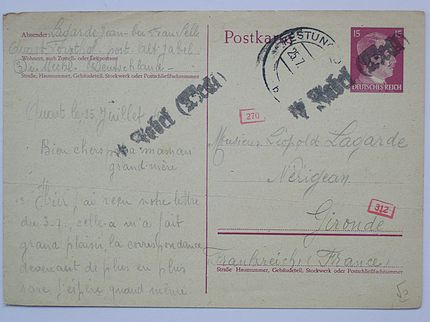 Absender: Lagarde Jean
Wohnort, auch Zustell- oder Leitpostamt
Straße, Hausnummer, Gebäudeteil, Stockwerk oder Postschließfachnummer
Postkarte
FESTUNG
25.7.
15 15
DEUTSCHES REICH
270
le 25 Juillet
Bien chers maman
grand-mère
Hier j'ai reçu votre lettre
du 3-7, celle-ci m'a fait
grand plaisir, la correspondance
devenant de plus en plus
rare j'espère quand même
Monsieur Léopold Lagarde
Nérigean
Gironde
312
Frankreich (France)
Straße, Hausnummer, Gebäudeteil, Stockwerk oder Postschließfachnummer